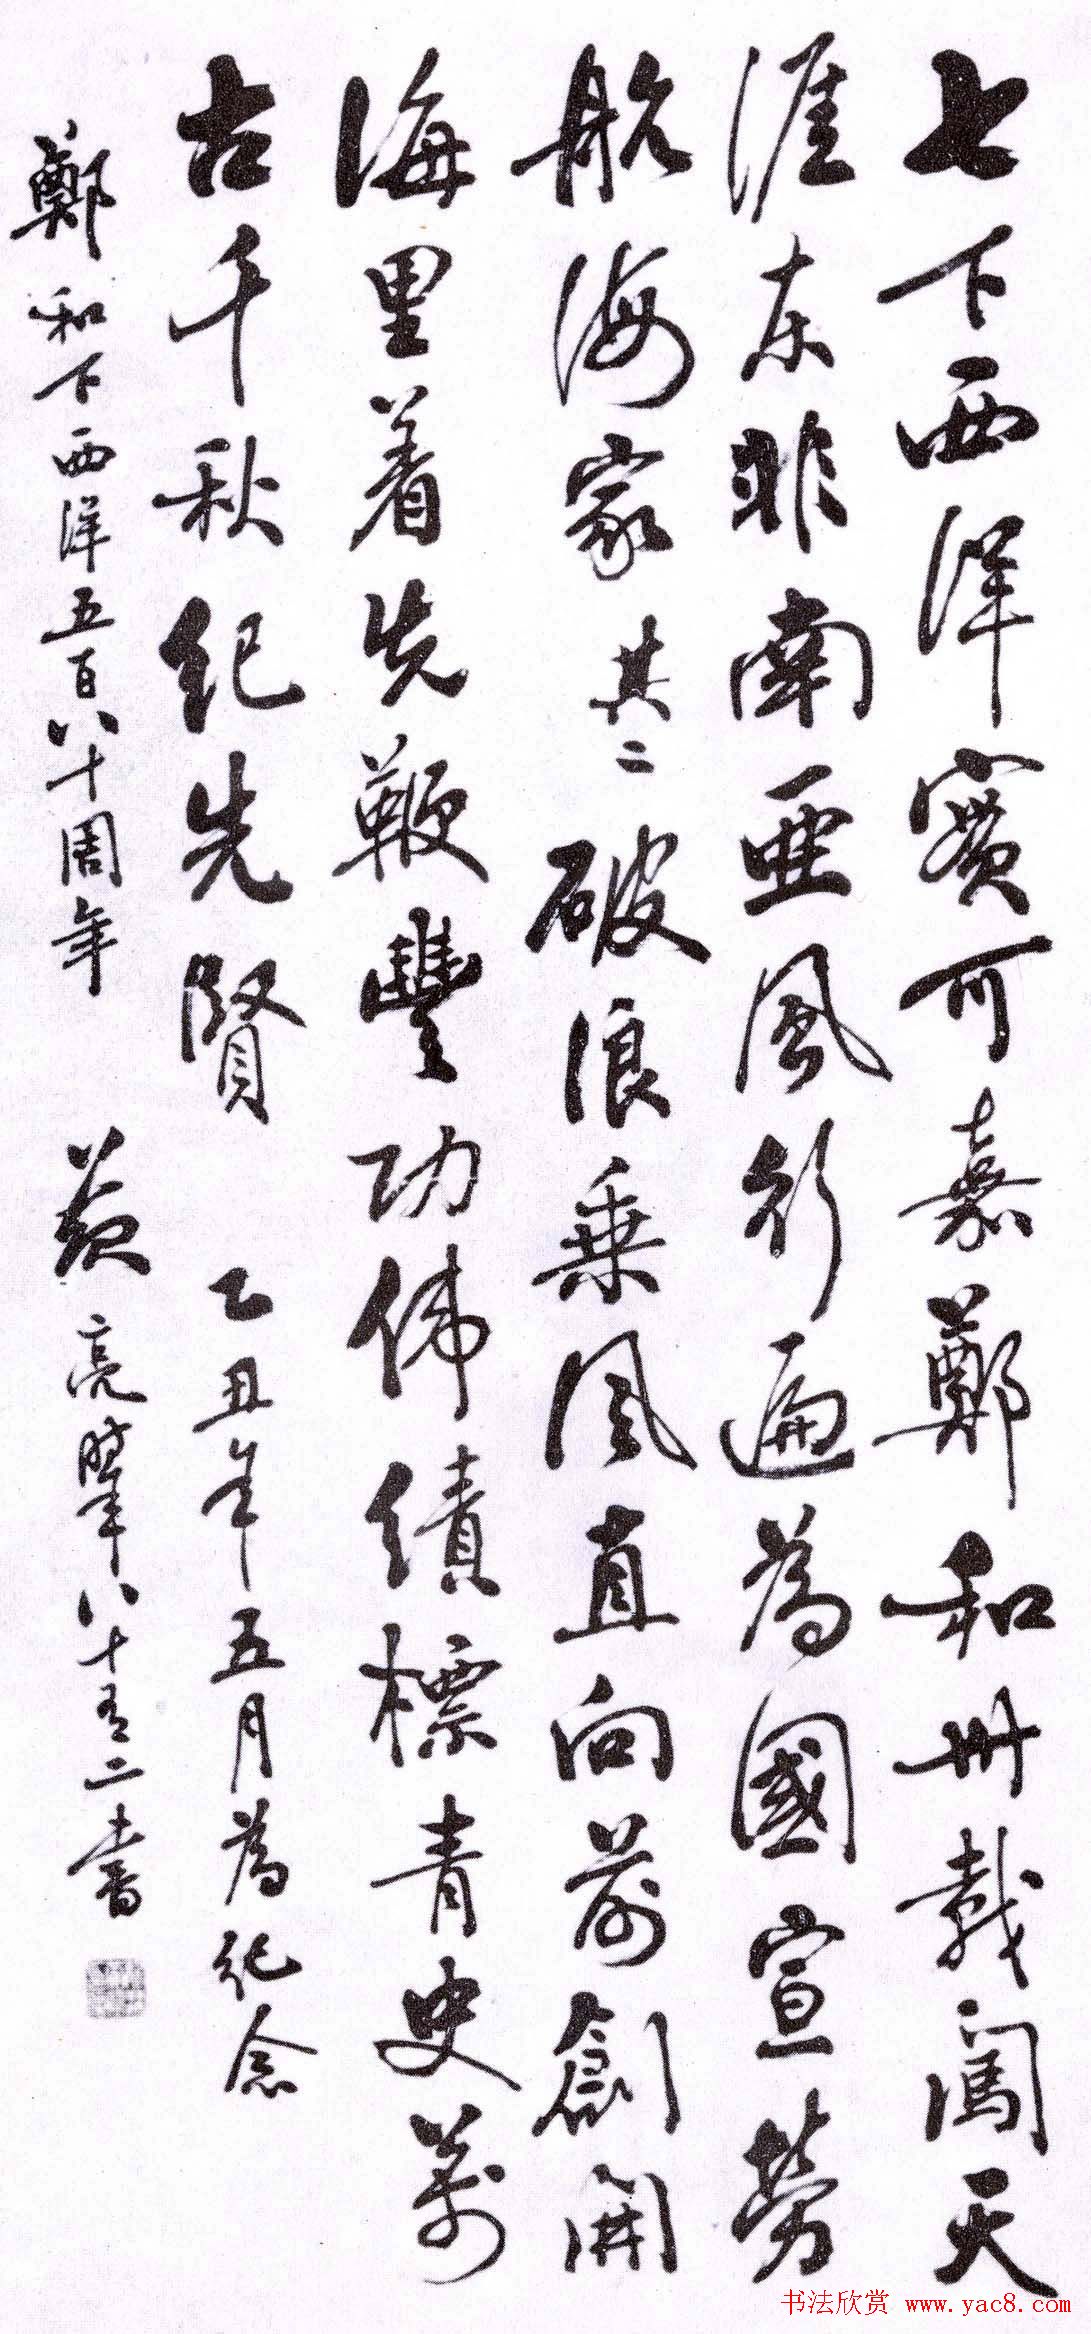 七下西洋實可嘉鄭和卅載闖天
涯东非南亜風行遍為國宣勞
航海家其二破浪乘风直向前創開
海里着先鞭豐功伟績標青史萬
古千秋纪先贤乙丑年五月為纪念
鄭和下西洋五百八十周年 萧亮肇八十有二書
书法欣赏 www.yac8.com